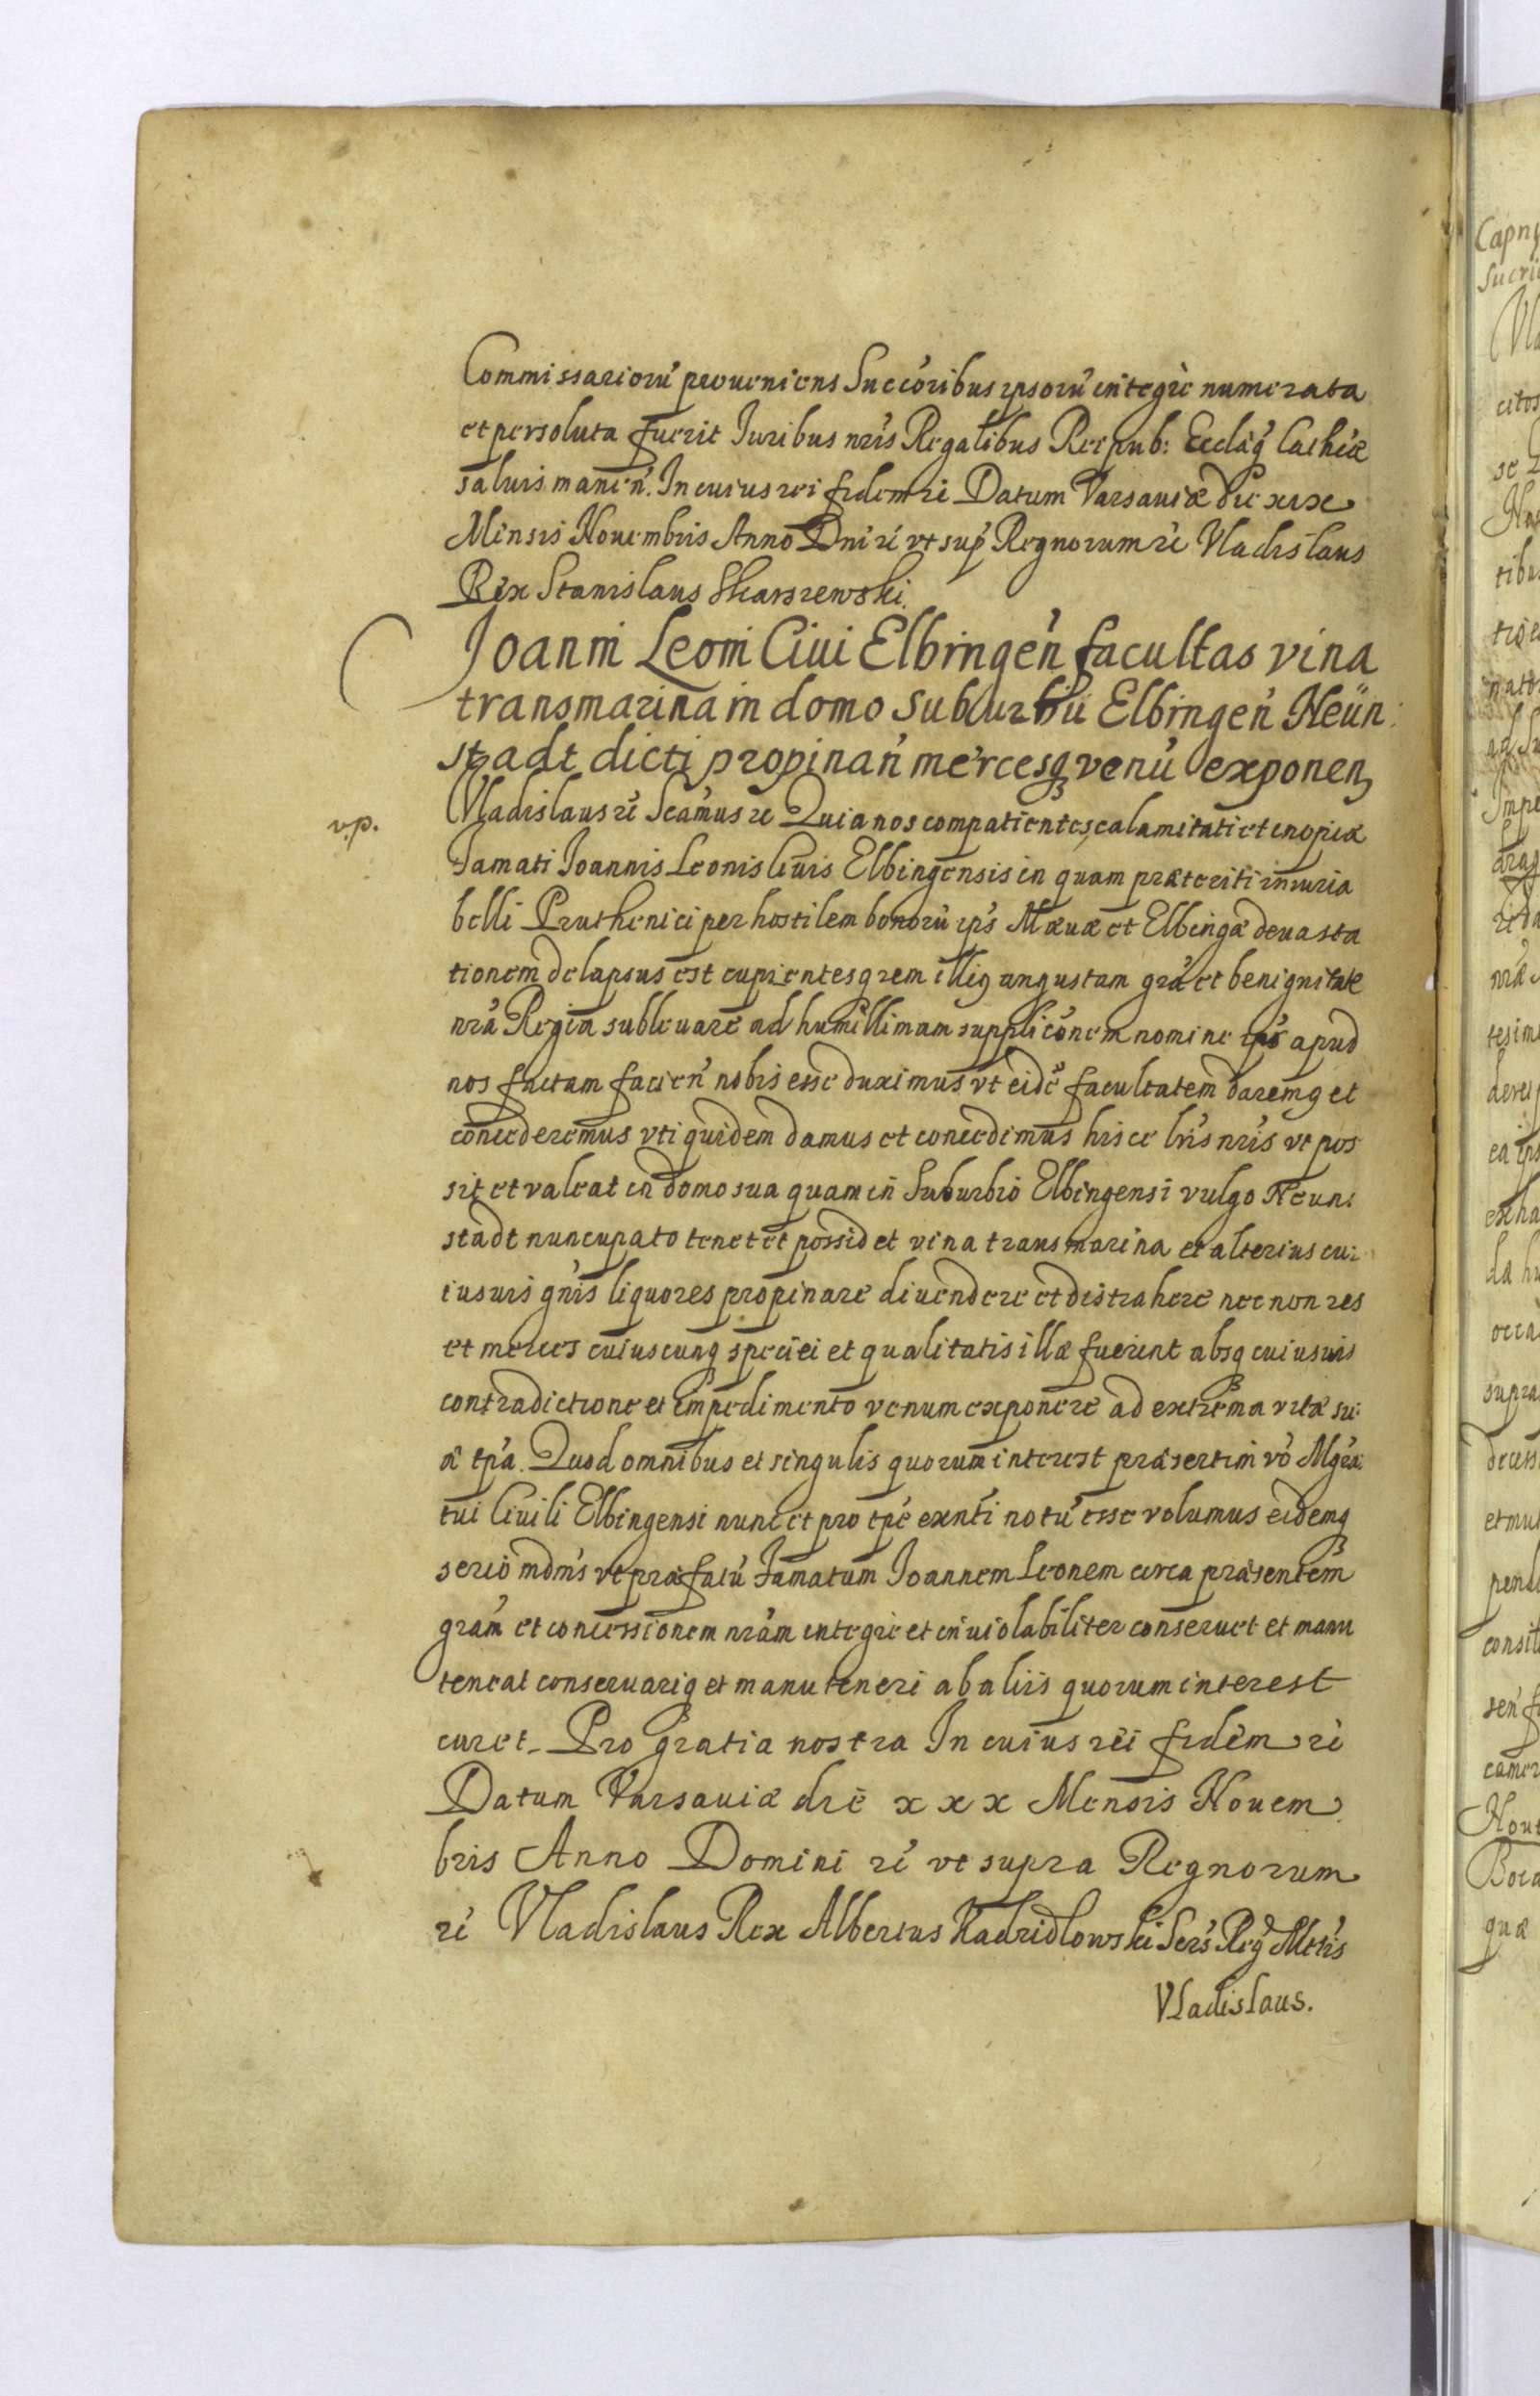 Commissariorú proueniens Succóribus ipsorú integrè numerata
et persoluta fuerit Iuribus nrís Regalibus Reipub: Ecclaéq Cathcæ
saluis manen. In cuius rei fidem rć Datum Varsauiæ die xxix
Mensis Nouembris Anno Dni rć vt sup Regnorum rć Vladislaus
Rex Stanislaus Skarszewski.
Joanni Leoni Ciui Elbingeń facultas vina
transmarina in domo Suburbii Elbingeń Neün:
stadt dicti propinań mercesq venú exponen
v.p.
Vladislaus rć Scámus rć Quia nos compatientes calamitati et inopiæ
Famati Joannis Leonis Ciuis Elbingensis in quam præteriti iniuria
belli Pruthenici per hostilem bonorú ips Mæuæ et Elbingæ deuasta
tionem delapsus est cupientesq rem illius angustam grá et benignitate
nrá Regia subleuare ad humillimam supplicónem nomine ips apud
nos factam facień nobis esse duximus vt eidē facultatem daremus et
concederemus vti quidem damus et concedimus hisce lrís nrís vt pos
sit et valeat in domo sua quam in Suburbio Elbingensi vulgo Neun:
stadt nuncupato tenet et possidet vina transmarina et alterius cu:
iusuis gnis liquores propinare diuendere et distrahere nec non res
et merces cuiuscunq speciei et qualitatis illæ fuerint absq cuiusuis
contradictione et impedimento venum exponere ad extrema vitæ su:
æ tpá. Quod omnibus et singulis quorum interest præsertim vó Mgrá:
tui Ciuili Elbingensi nunc et pro tpé exnti notú esse volumus eidemq
serio mdms vt præfatú Famatum Joannem Leonem circa præsentem
grám et concessionem nrám integrè et inuiolabiliter conseruet et manu
teneat conseruariq et manuteneri ab aliis quorum interest
curet. Pro gratia nostra In cuius rei fidem rć
Datum Varsauiæ die xxx Mensis Nouem
bris Anno Domini rć vt supra Regnorum
rć Vladislaus Rex Albertus Kadzidlowski Sers Reg Mttis
Vladislaus.